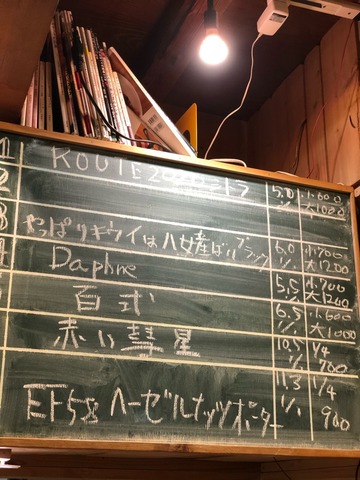 1 ROUTE 5.0% 小600 大1000
2
3 やっぱりキウイは八女産ばい ブラック 6.0% 小700 大1200
4 Daphne 5.5% 小700 大1200
百式 6.5% 小600 大1000
赤い彗星 10.5% 1/4 700
EF58 ヘーゼルナッツポーター 11.3% 1/4 900